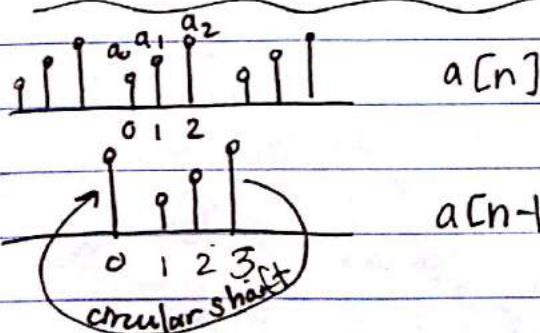 a₀ a₁ a₂
a[n]
0 1 2
a[n-1
0 1 2 3
circular shaft